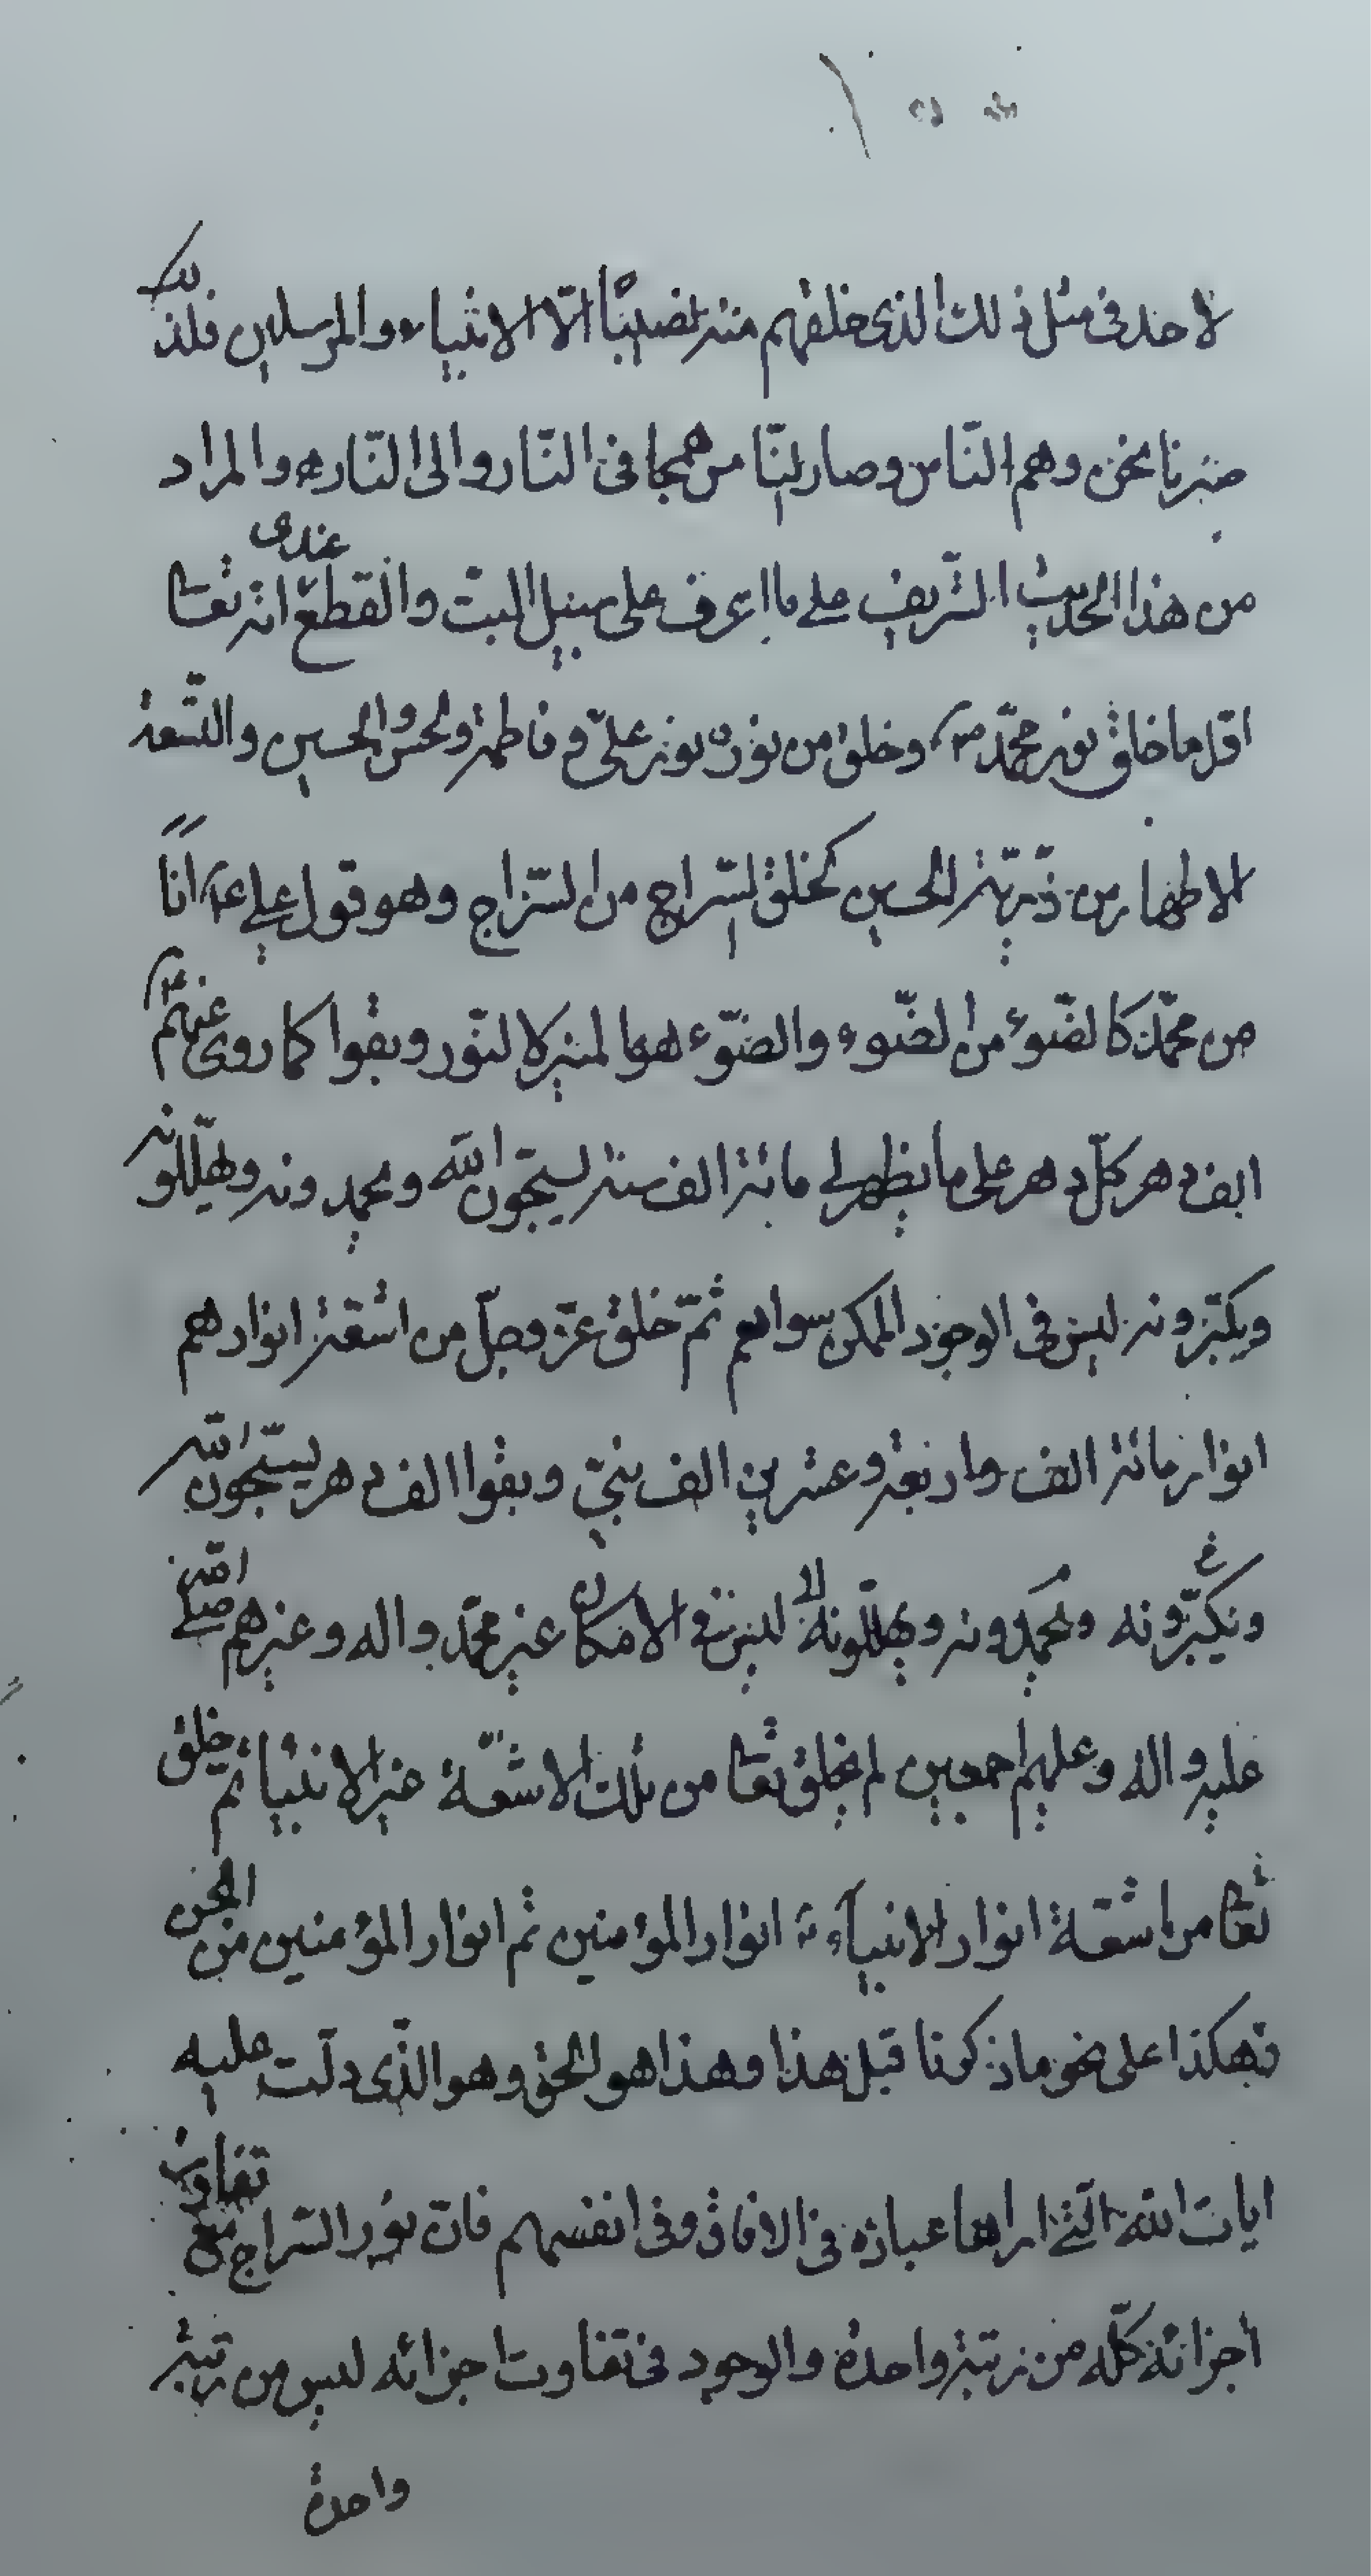 لاحد في مثل ذلك الذي خلقهم منه نصيبًا الّا الانبياء والمرسلين فلذلك
صرنا نحن وهم النّاس وصار سائر النّاس همجا في النّار والى النّار والمراد
من هذا الحديث الشّريف على ما اعرف على سبيل البتّ والقطع عندى انه تعا
اوّل ما خلق نور محمّد ص وخلق من نوره نور علىّ وفاطمة والحسن والحسين والتّسعة
الاطهار من ذرّيّة الحسين كخلق السّراج من السّراج وهو قول علي ع انا
من محمّد كالضّوء من الضّوء والضّوء هو المنير لا النّور وبقوا كما روى عنهم ع
الف دهر كلّ دهر على ما يظهر لي مائة الف سنة يسبّحون الله ويحمدونه ويهلّلونه
ويكبّرونه ليس في الوجود الممكن سواهم ثمّ خلق عزّ وجلّ من اشعّة انوارهم
انوار مائة الف واربعة وعشرين الف نبيّ وبقوا الف دهر يسبّحون الله
ويكبّرونه ويحمدونه ويهلّلونه ليس في الامكان غير محمّد واله وغيرهم صلى الله
عليه واله وعليهم اجمعين لم يخلق تعا من تلك الاشعّة غير الانبياء ثم خلق
تعا من اشعّة انوار الانبياء ع انوار المؤمنين ثم انوار المؤمنين من الجن
وهكذا على نحو ما ذكرنا قبل هذا وهذا هو الحق وهو الذّى دلّت عليه
ايات الله الّتي اراها عباده في الافاق وفى انفسهم فانّ نور السّراج مع تفاوت
أجزائه كلّه من رتبة واحدة والوجود في تفاوت اجزائه ليس من رتبة
واحدة